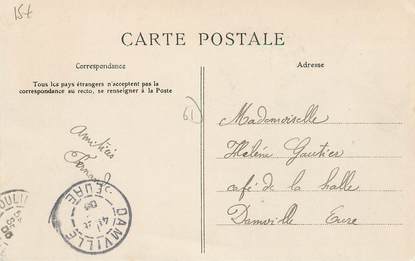 15f
CARTE POSTALE
Correspondance
Tous les pays étrangers n'acceptent pas la
correspondance au recto, se renseigner à la Poste
Amitiés
Adresse
61
Mademoiselle
Hélène Gautier
café de la halle
Damville Eure
DAMVILLE
EURE